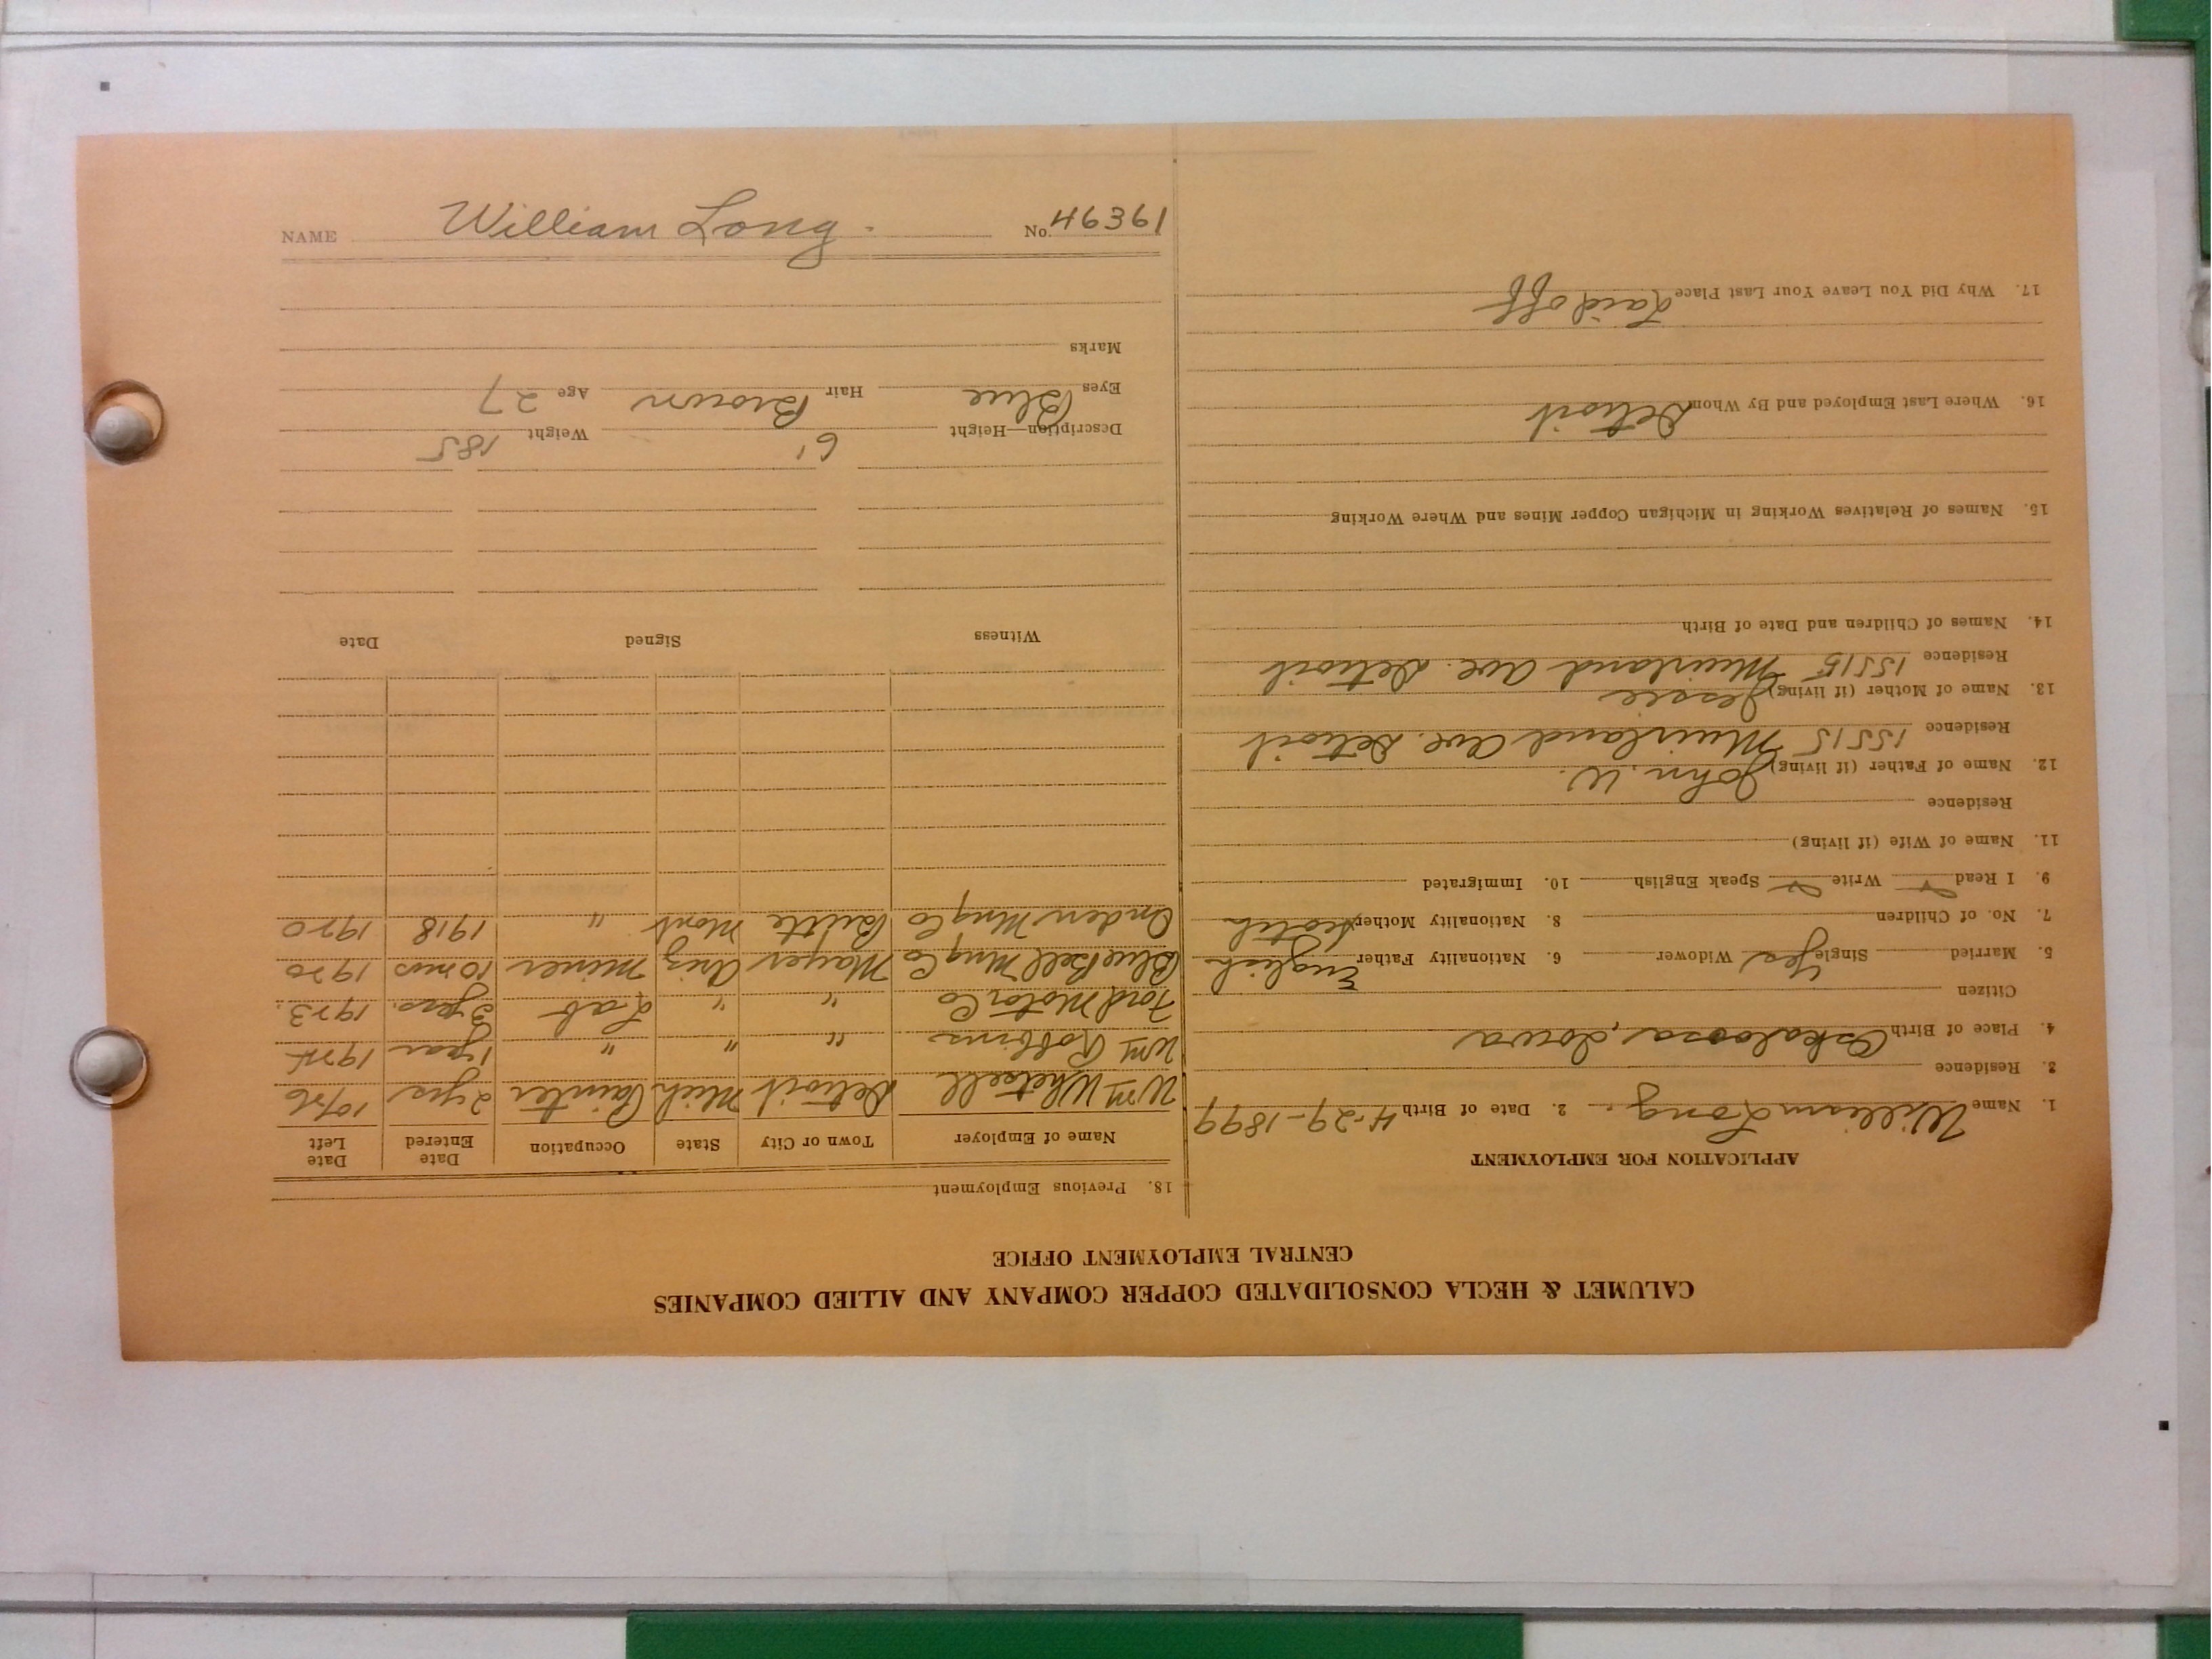 CALUMET & HECLA CONSOLIDATED COPPER COMPANY AND ALLIED COMPANIES
CENTRAL EMPLOYMENT OFFICE
APPLICATION FOR EMPLOYMENT
1. Name William Long. 2. Date of Birth 4-29-1899
3. Residence
4. Place of Birth Oskaloosa, Iowa
Citizen
5. Married Single Yes Widower 6. Nationality Father English
7. No. of Children 8. Nationality Mother Scotch
9. I Read Write Speak English 10. Immigrated
11. Name of Wife (if living)
Residence
12. Name of Father (if living) John. W.
Residence 15515 Muirland Ave. Detroit
13. Name of Mother (if living) Jessie
Residence 15515 Muirland Ave. Detroit
14. Names of Children and Date of Birth
15. Names of Relatives Working in Michigan Copper Mines and Where Working
16. Where Last Employed and By Whom Detroit
17. Why Did You Leave Your Last Place Laid off
18. Previous Employment
Name of Employer Town or City State Occupation Date Entered Date Left
Wm Whetsell Detroit Mich Painter 2 yrs 10/26
Wm Robbins " " " 1 year
Ford Motor Co " " Lab 3 yrs. 1923.
Blue Bell Mng Co Mayer Ariz Miner 10 mos 1920
Mng Co Butte Mont " 1918 1920
Witness Signed Date
Description—Height 6' Weight 185
Eyes Blue Hair Brown Age 27
Marks
NAME William Long. No. 46361